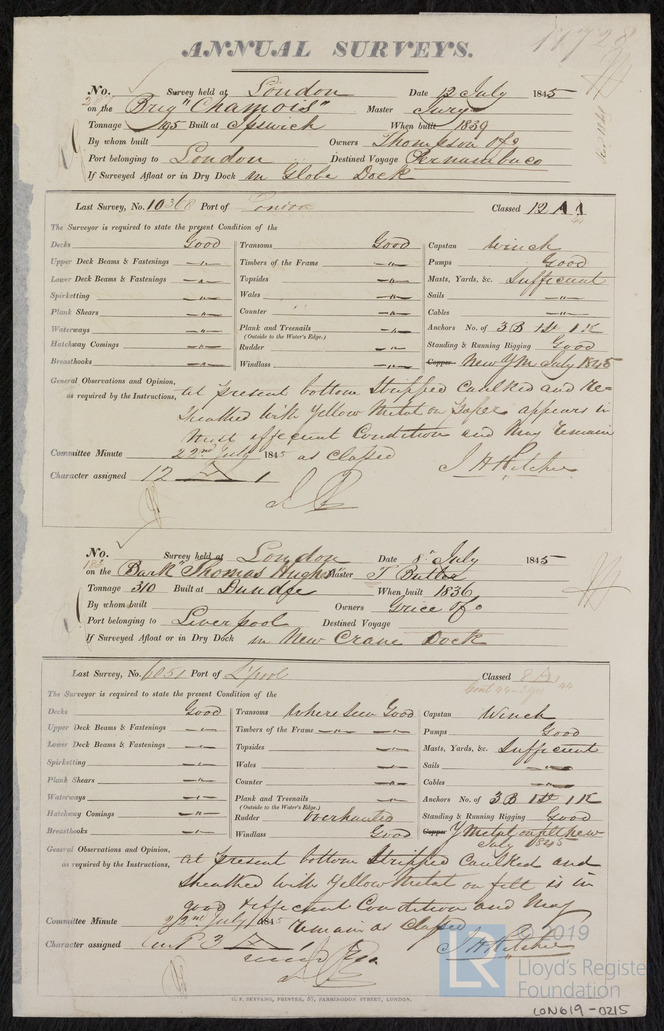 ANNUAL SURVEYS.
No. Survey held at London Date 12 July 1845
on the Brig "Chamois" Master
Tonnage 195 Built at Ipswich When built 1839
By whom built Owners Thompson & Co
Port belonging to London Destined Voyage Pernambuco
If Surveyed Afloat or in Dry Dock in Globe Dock
Last Survey, No. 10368 Port of London Classed 12 A 1
The Surveyor is required to state the present Condition of the
Decks Good Transoms Good Capstan Winch
Upper Deck Beams & Fastenings " Timbers of the Frame " Pumps Good
Lower Deck Beams & Fastenings " Topsides " Masts, Yards, &c. Sufficient
Spirketting " Wales " Sails "
Plank Shears " Counter " Cables "
Waterways " Plank and Treenails " Anchors No. of 3 B 1 St 1 K
(Outside to the Water's Edge.)
Hatchway Comings " Rudder " Standing & Running Rigging Good
Breasthooks " Windlass " Copper New YM July 1845
General Observations and Opinion, at present bottom Stripped Caulked and re-
as required by the Instructions, sheathed with Yellow Metal on Paper appears in
most efficient Condition and May remain
Committee Minute 22nd July 1845 as Classed
Character assigned 12 A 1 J H Pitcher
No. Survey held at London Date 8th July 1845
on the Bark "Thomas Hughes" Master T Butler
Tonnage 310 Built at Dundee When built 1836
By whom built Owners Grice & Co
Port belonging to Liverpool Destined Voyage
If Surveyed Afloat or in Dry Dock in New Crane Dock
Last Survey, No. 6051 Port of L'pool Classed 8 A 1
Cont 44-3 yrs 44
The Surveyor is required to state the present Condition of the
Decks Good Transoms Where seen Good Capstan Winch
Upper Deck Beams & Fastenings " Timbers of the Frame " " Pumps Good
Lower Deck Beams & Fastenings " Topsides " Masts, Yards, &c. Sufficient
Spirketting " Wales " Sails "
Plank Shears " Counter " Cables "
Waterways " Plank and Treenails " Anchors No. of 3 B 1 St 1 K
(Outside to the Water's Edge.)
Hatchway Comings " Rudder Overhauled Standing & Running Rigging Good
Breasthooks " Windlass Good Copper Y Metal on felt new
July 1845
General Observations and Opinion, at present bottom Stripped Caulked and
as required by the Instructions, sheathed with Yellow Metal on felt is in
good & efficient Condition and May
Committee Minute 22nd July 1845 remain as Classed
Character assigned Cont 3 A 1 J H Pitcher
G. F. SEYFANG, PRINTER, 57, FARRINGDON STREET, LONDON.
© 2019
LR
Lloyd's Register
Foundation
LON619-0215